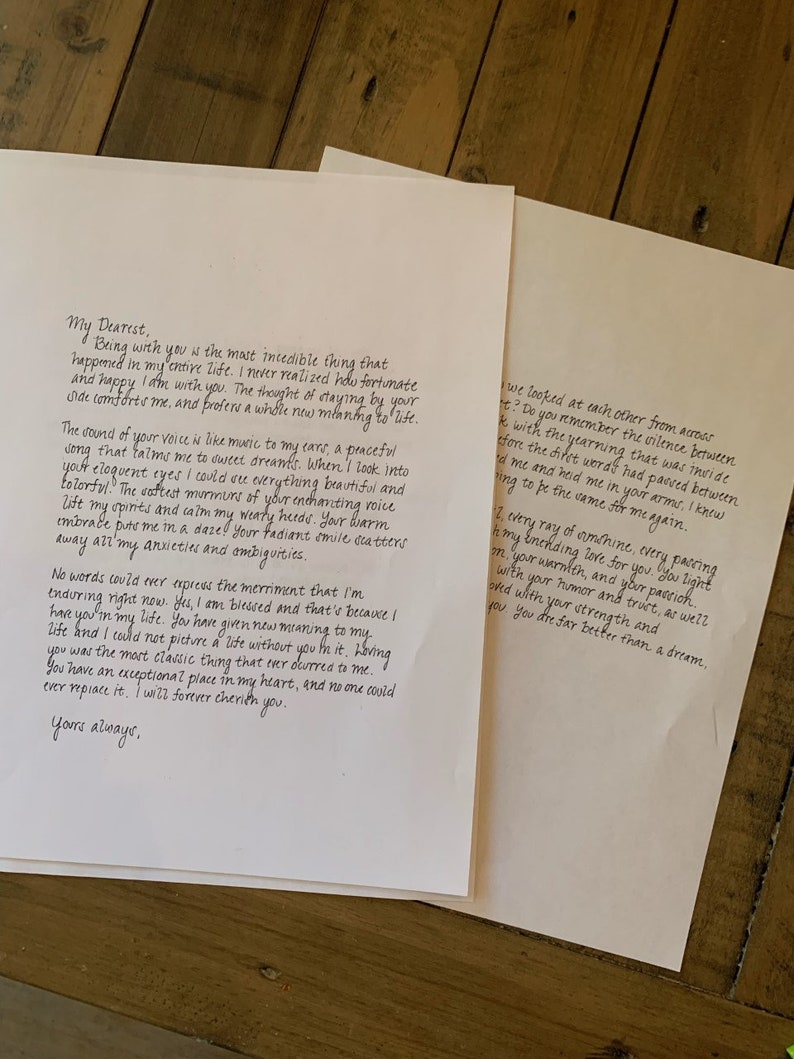 My Dearest,
Being with you is the most incedible thing that
happened in my entire life. I never realized how fortunate
and happy I am with you. The thought of staying by your
side comforts me, and profers a whole new meaning to life.
The sound of your voice is like music to my ears, a peaceful
song that calms me to sweet dreams. When I look into
your eloquent eyes I could see everything beautiful and
colorful. The softest murmurs of your enchanting voice
lift my spirits and calm my weary heeds. Your warm
embrace puts me in a daze! Your radiant smile scatters
away all my anxieties and ambiguities.
No words could ever express the merriment that I'm
enduring right now. Yes, I am blessed and that's because I
have you in my life. You have given new meaning to my
life and I could not picture a life without you in it. Loving
you was the most classic thing that ever ocurred to me.
You have an exceptional place in my heart, and no one could
ever replace it. I will forever cherish you.
Yours always,
we looked at each other from across
Do you remember the silence between
with the yearning that was inside
before the first words had passed between
me and held me in your arms, I knew
to be the same for me again.
every ray of sunshine, every passing
my unending love for you. You light
your warmth, and your passion.
with your humor and trust, as well
with your strength and
you. You are far better than a dream,